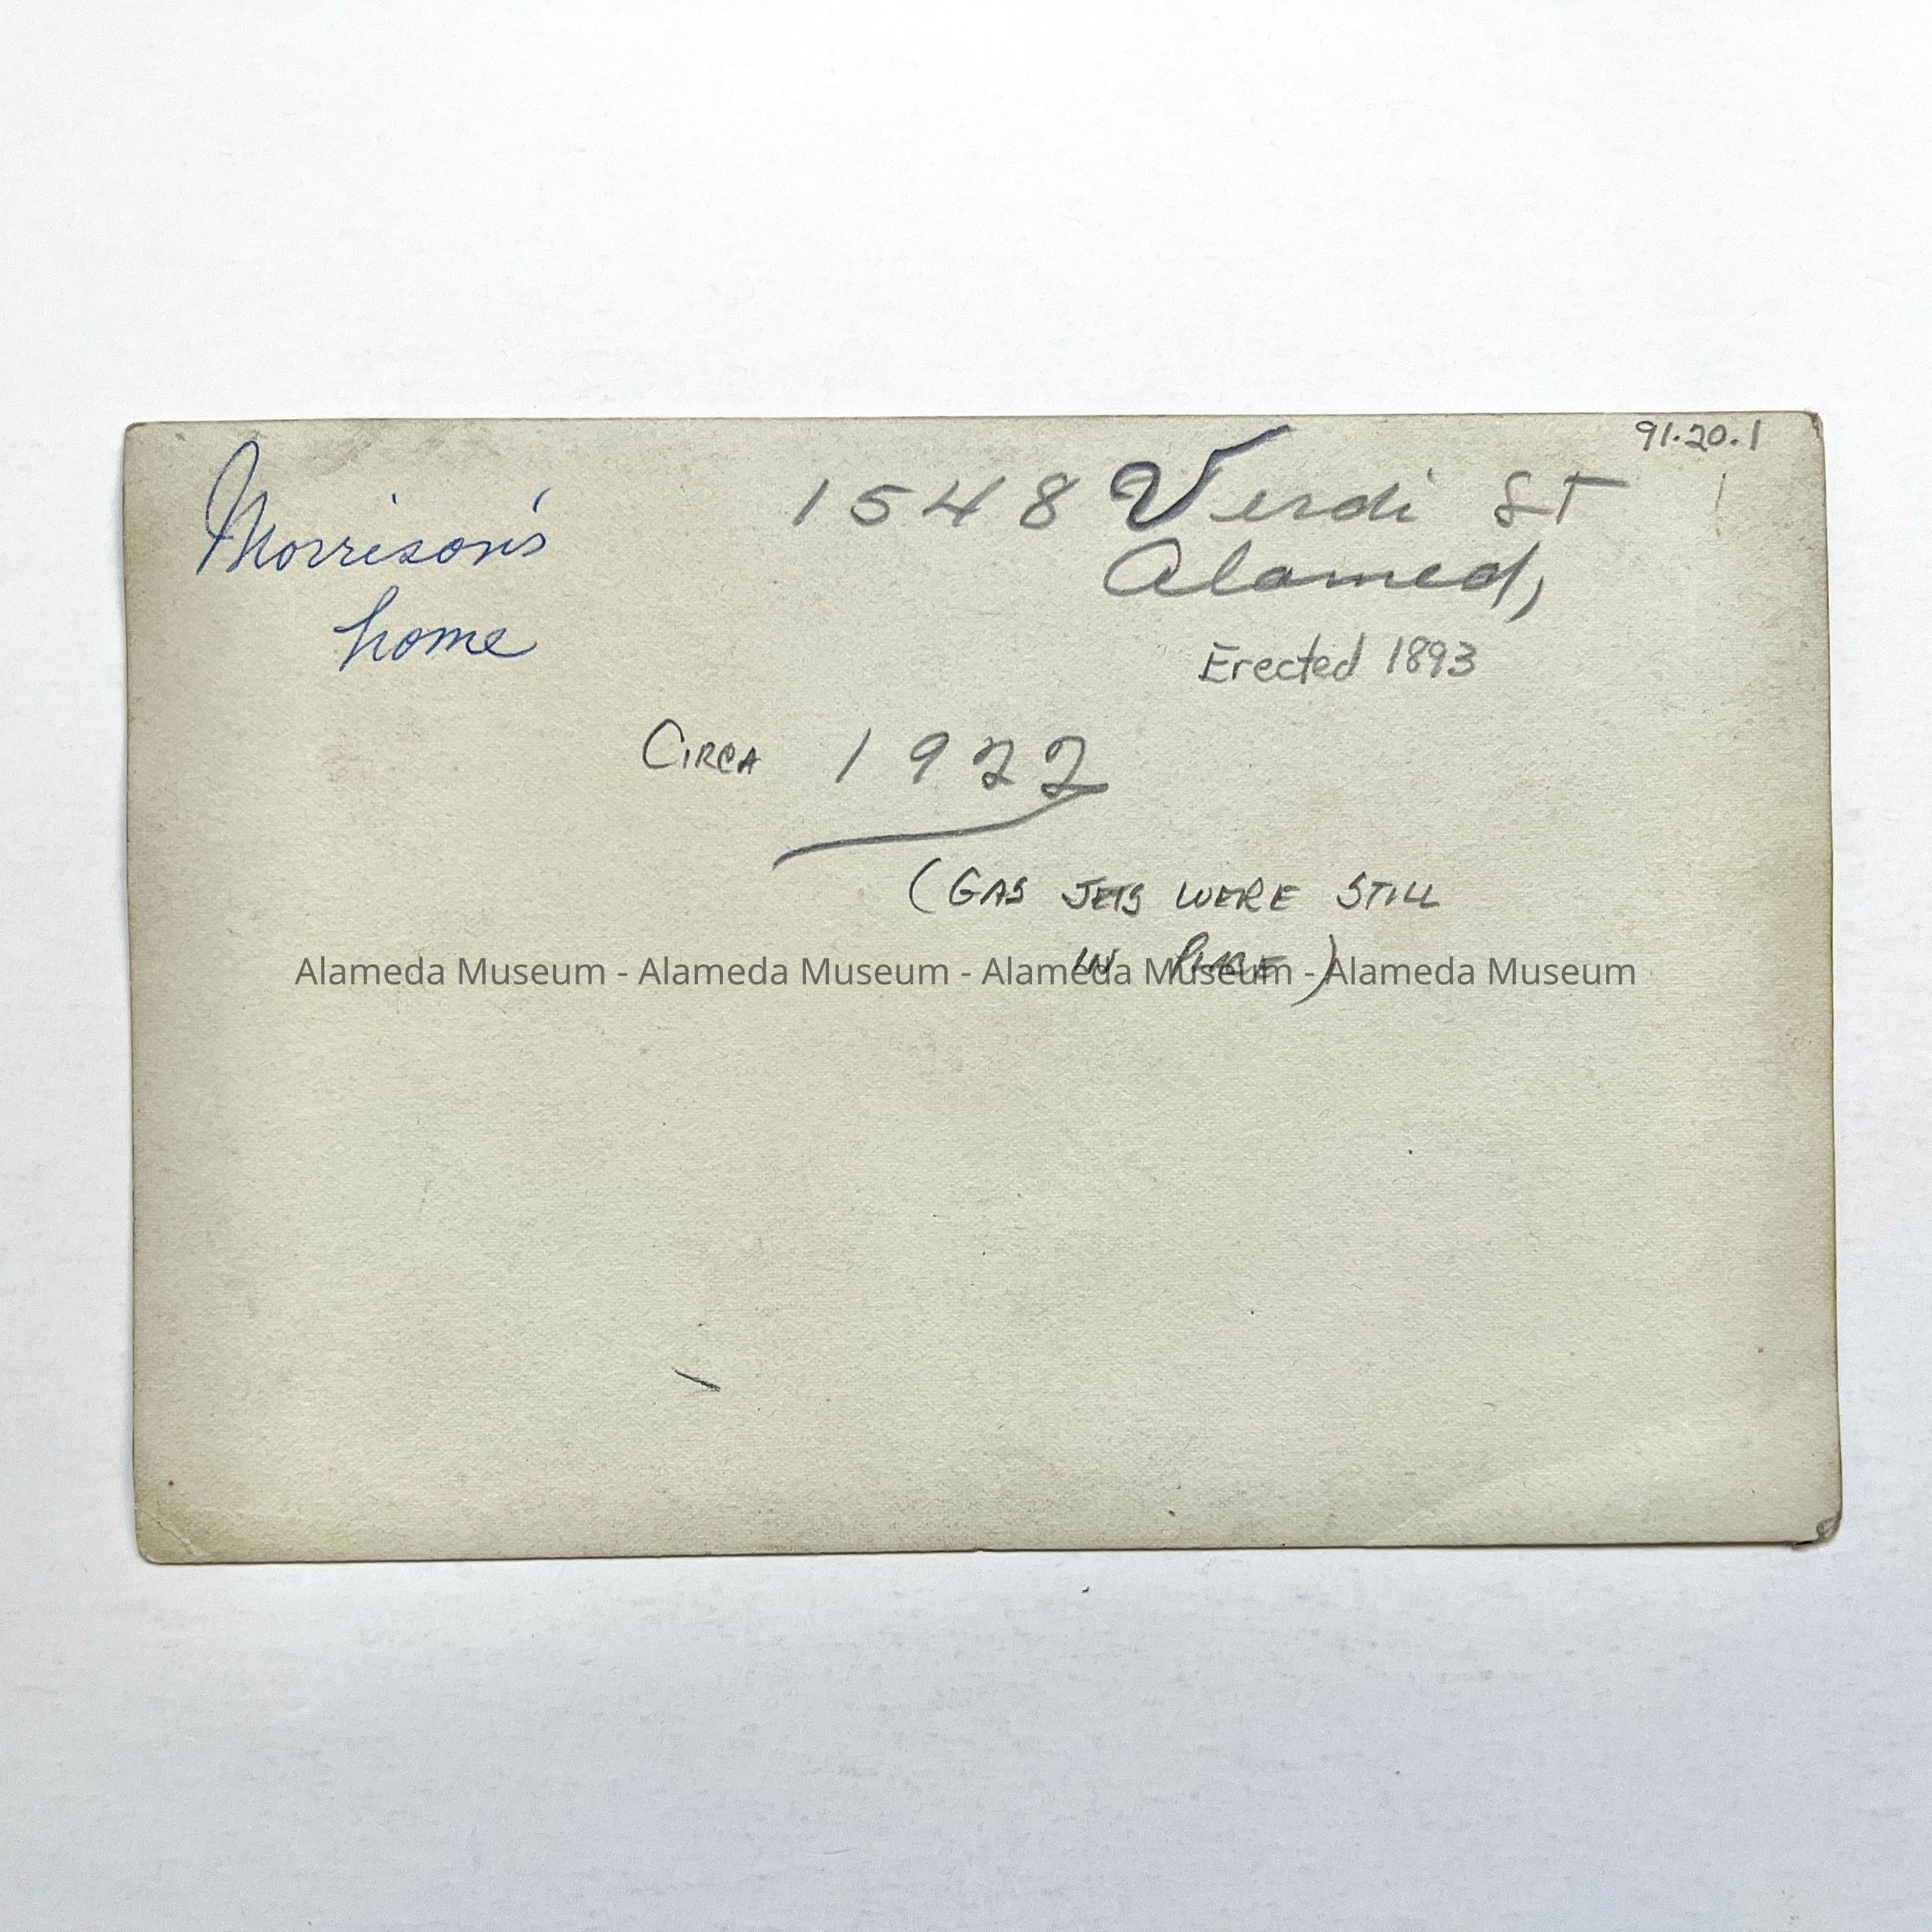 91.20.1
Morrison's
home
1548 Verdi St
Alameda,
Erected 1893
CIRCA 1922
(GAS JETS WERE STILL
IN PLACE)
Alameda Museum - Alameda Museum - Alameda Museum - Alameda Museum